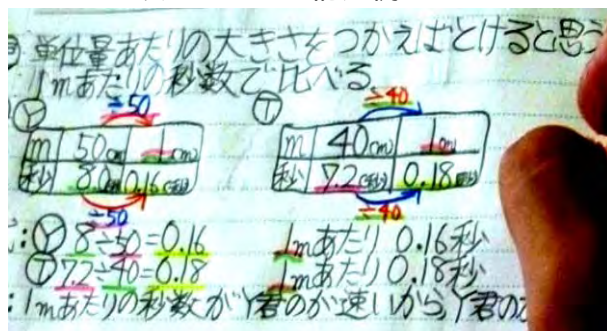 単位量あたりの大きさをつかえばとけると思う
1mあたりの秒数で比べる
Ⓨ ÷50 Ⓣ ÷40
m 50(m) 1(m) m 40(m) 1(m)
秒 8.0(秒) 0.16(秒) 秒 7.2(秒) 0.18(秒)
÷50 ÷40
: Ⓨ 8÷50=0.16 1mあたり 0.16秒
Ⓣ 7.2÷40=0.18 1mあたり 0.18秒
: 1mあたりの秒数がY君のが速いからY君の